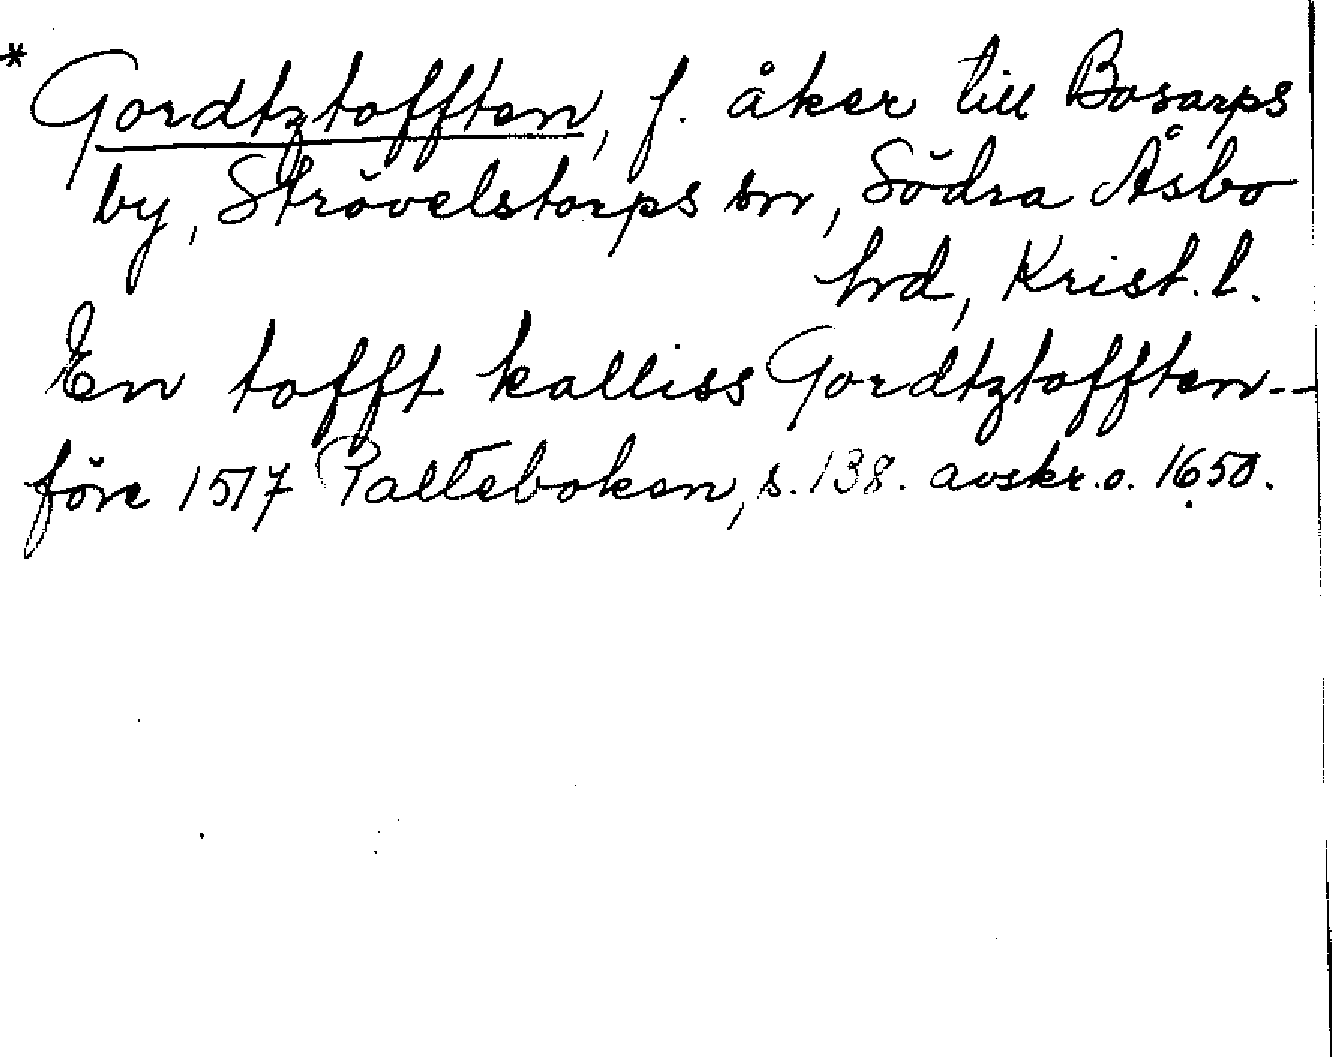 * Gordtztofften, f. åker till Bosarps
by, Strövelstorps sn, Södra Åsbo
hrd, Krist. l.
En tofft kalliss Gordtztofften--
före 1517 Palteboken, s. 138. avskr. o. 1650.